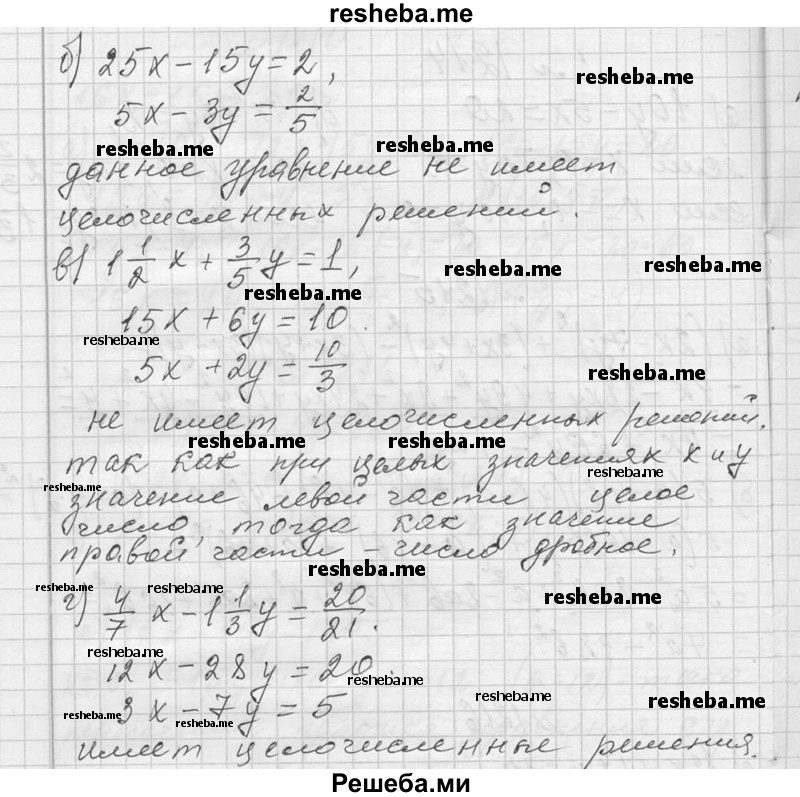 resheba.me
б) 25x - 15y = 2,
resheba.me
5x - 3y = 2/5
resheba.me resheba.me
данное уравнение не имеет
целочисленных решений.
в) 1 1/2 x + 3/5 y = 1,
resheba.me resheba.me
resheba.me
15x + 6y = 10.
resheba.me
5x + 2y = 10/3
resheba.me
не имеет целочисленных решений.
resheba.me resheba.me
так как при целых значениях x и y
resheba.me
resheba.me
значение левой части целое
число, тогда как значение
правой части - число дробное.
resheba.me
resheba.me resheba.me resheba.me
г) 4/7 x - 1 1/3 y = 20/21.
resheba.me
12x - 28y = 20.
resheba.me
resheba.me resheba.me
3x - 7y = 5
resheba.me resheba.me
имеет целочисленные решения.
Решеба.ми